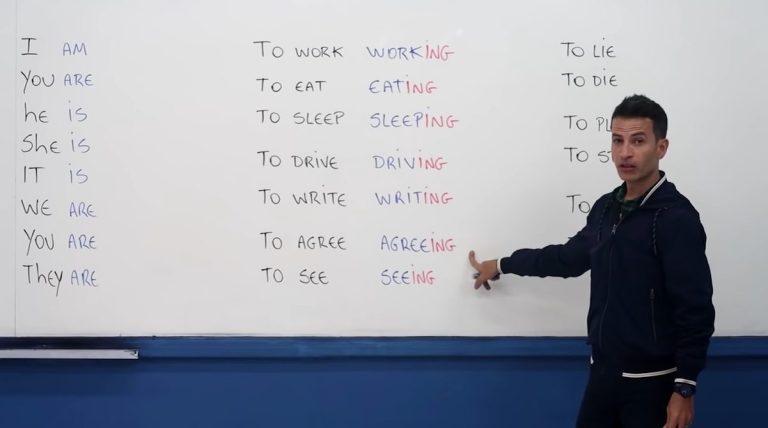 I AM
YOU ARE
he is
She is
IT is
WE ARE
YOU ARE
They ARE
TO WORK WORKING
TO EAT EATING
TO SLEEP SLEEPING
TO DRIVE DRIVING
TO WRITE WRITING
TO AGREE AGREEING
TO SEE SEEING
TO LIE
TO DIE
TO
TO
TO